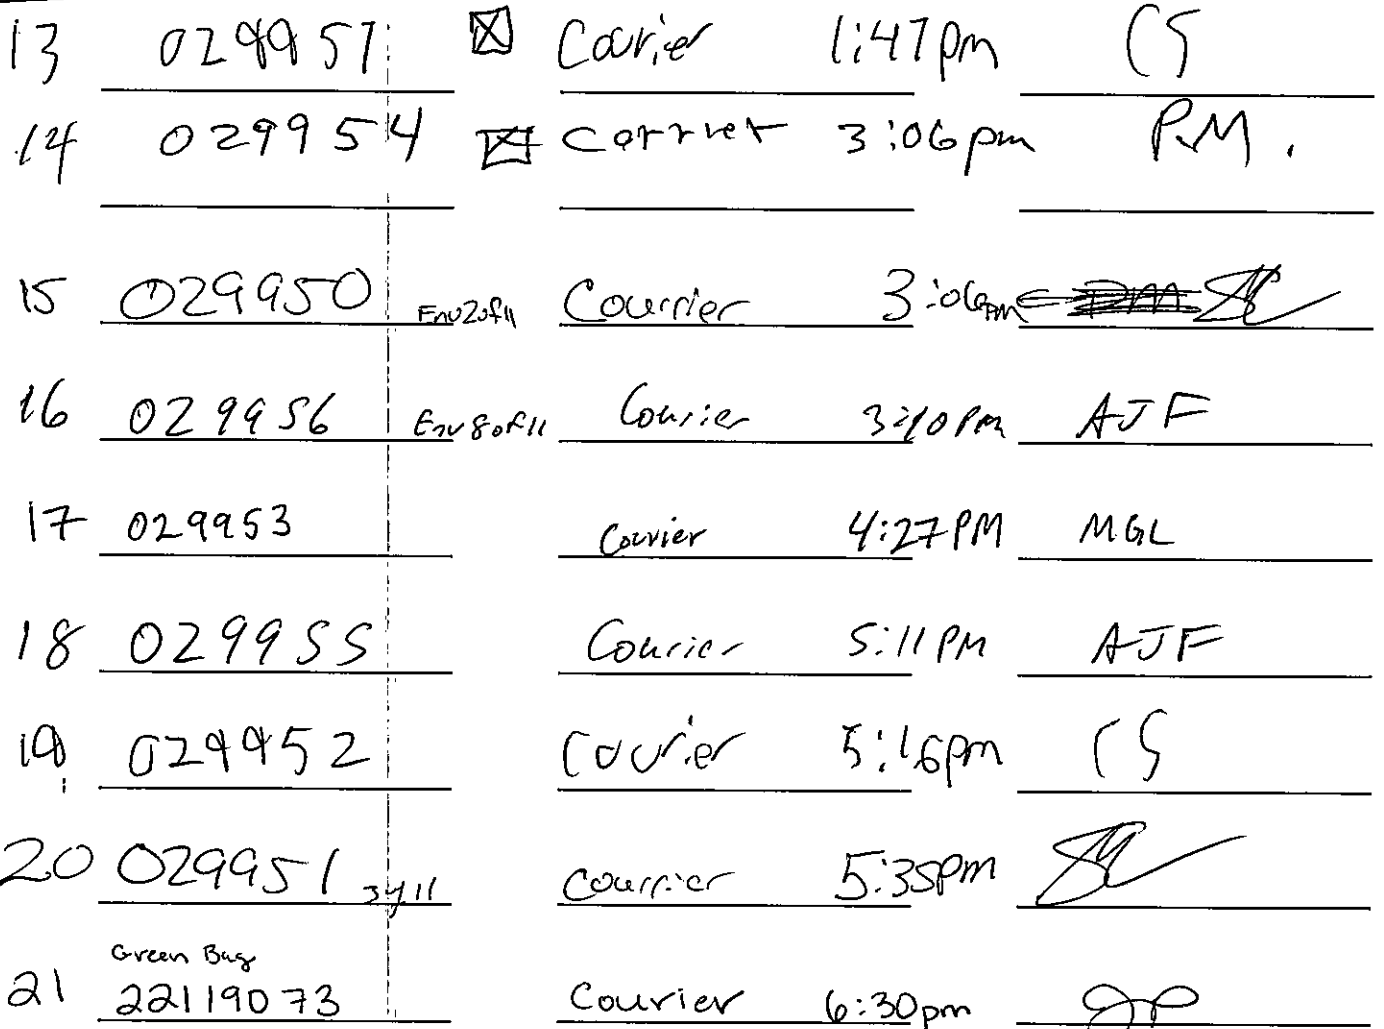 13 029957 Courier 1:47pm CS
14 029954 Corrier 3:06pm P.M.
15 029950 Env2of11 Courrier 3:06pm
16 029956 Env8of11 Courier 3:10PM AJF
17 029953 Courier 4:27PM MGL
18 029955 Courier 5:11PM AJF
19 029952 Courier 5:16pm CS
20 029951 Courrier 5:35pm
Green Bag
21 22119073 Courier 6:30pm